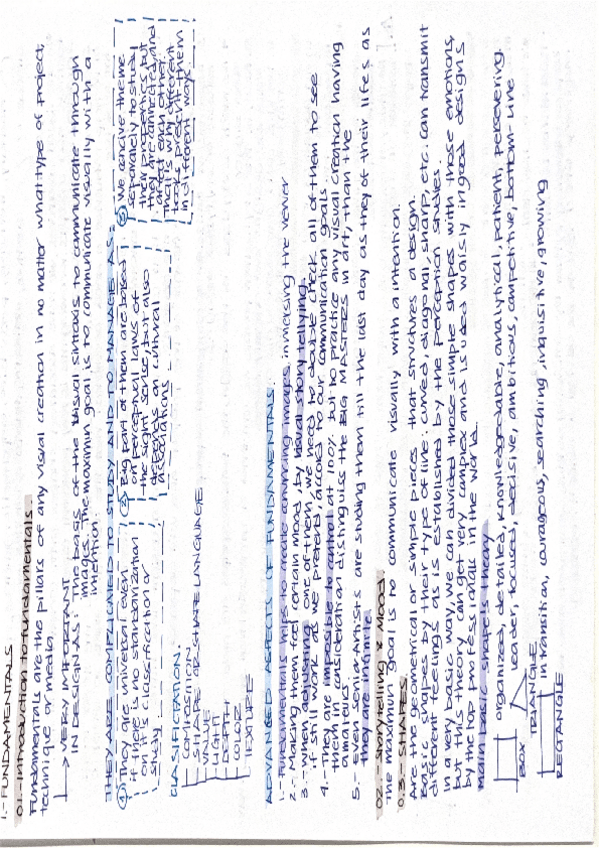 1.- FUNDAMENTALS
01.- Introduction to fundamentals.
Fundamentals are the pillars of any visual creation in no matter what type of project,
technique or media.
→ VERY IMPORTANT
IN DESIGN AS: The basis of the visual sintaxis to communicate through
images. The maximin goal is to communicate visually with a
intention.
THEY ARE COMPLICATED TO STUDY AND TO MANAGE AS:
① They are universal even
if there is no standarization
on it's classification or
study
② Big part of them are based
on perceptual laws of
the sight sense, but also
depends on cultural
associations
③ We concive theme
separately to study
their properties but
they are connected and
affect each other.
Finally with different
tools present them
in different ways.
CLASIFICTATION.
COMPOSITION
SHAPE OR SHAPE LANGUAGE
VALUE
LIGHT
DEPTH
COLOR
TEXTURE
ADVANCED ASPECTS OF FUNDAMENTALS.
1.- Fundamentals helps to create convincing images, inmersing the viewer
2.- Making them feel certain mood, by visual story tellying.
3.- when adjusting one of them, we need to double check all of them to see
if still work as we pretend, accord to our communication goals
4.- They are impossible to control at 100% but to practice any visual creation having
them in consideration distinguise the BIG MASTERS in art, than the
amateurs
5.- Even senior Artists are studing them till the last day as they of their lifes as
they are infinite.
02.- Storytelling & Mood.
The maximun goal is no communicate visually with a intention.
03.- SHAPES.
Are the geometrical or simple pieces that structures a design.
Basic shapes by their type of line: curved, diagonal, sharp, etc. can transmit
different feelings, as is established by the perception studies.
In a very basic way we can divided those simple shapes with those emotions,
but this theory can get very complex and is used waisly in good designs
by the top professionals in the world.
Main basic shape's theory
BOX organized, detailed, knowledgedable, analytical, patient, persevering.
TRIANGLE leader, focused, decisive, ambitious, competitive, bottom-line
RECTANGLE in transition, courageous, searching, inquisitive, growing